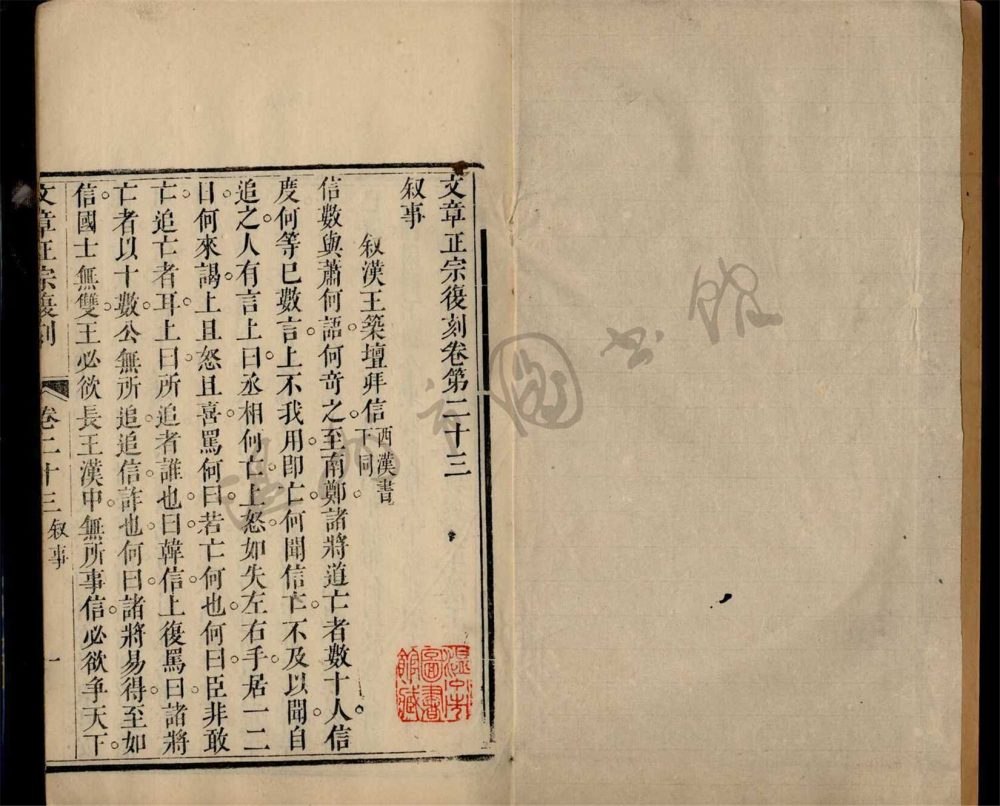 文章正宗復刻卷第二十三
叙事
叙漢王築壇拜信西漢書下同
信數與蕭何語何奇之至南鄭諸將道亡者數十人信
度何等已數言上不我用即亡何聞信亡不及以聞自
追之人有言上曰丞相何亡上怒如失左右手居一二
日何來謁上且怒且喜罵何曰若亡何也何曰臣非敢
亡追亡者耳上曰所追者誰也曰韓信上復罵曰諸將
亡者以十數公無所追追信詐也何曰諸將易得至如
信國士無雙王必欲長王漢中無所事信必欲争天下
文章正宗復刻
卷二十三
叙事
一
溫州市
圖書
館藏
圖書館